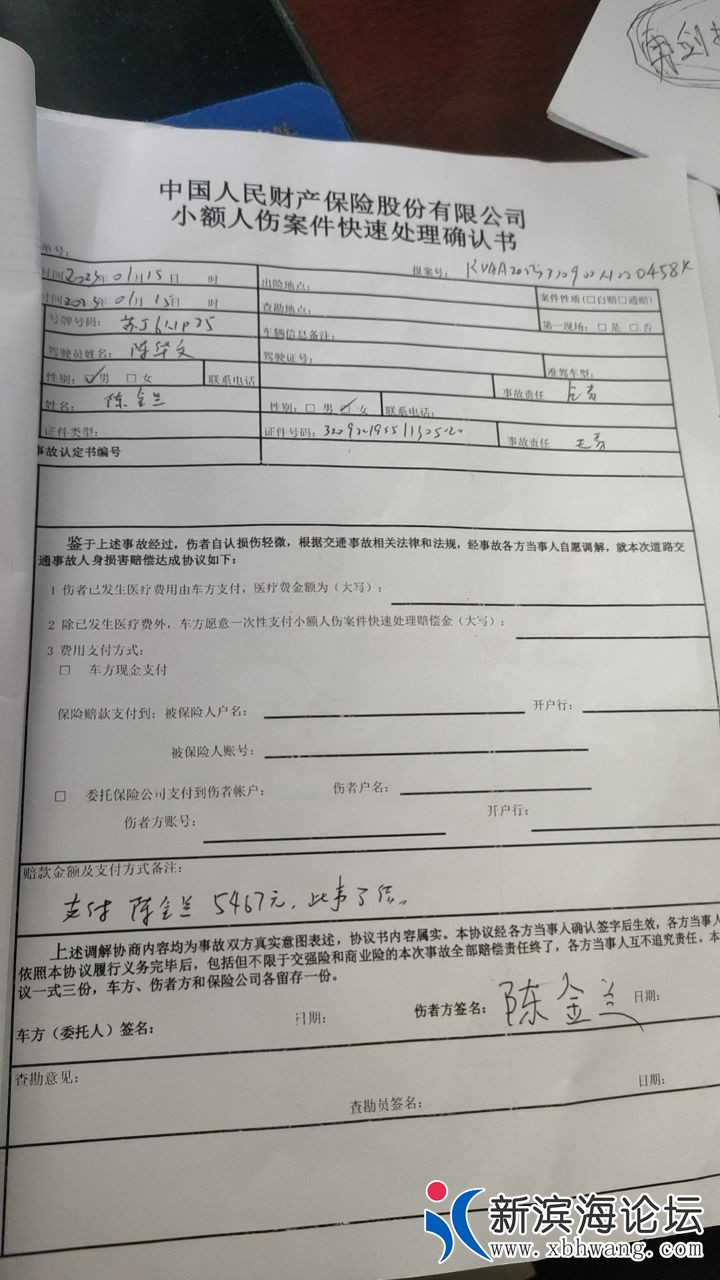 中国人民财产保险股份有限公司
小额人伤案件快速处理确认书
单号: 报案号:
时间2025年01月15日 时 出险地点: 案件性质(□自赔□通赔)
时间2025年01月15日 时 查勘地点: 第一现场: □ 是 □ 否
号牌号码: 车辆信息备注:
驾驶员姓名: 陈华文 驾驶证号: 准驾车型:
性别: ☑男 □女 联系电话 事故责任 全责
姓名: 陈金兰 性别: □ 男 ☑ 女 联系电话: 
证件类型: 证件号码: 事故责任 无责
事故认定书编号
鉴于上述事故经过，伤者自认损伤轻微，根据交通事故相关法律和法规，经事故各方当事人自愿调解，就本次道路交
通事故人身损害赔偿达成协议如下:
1 伤者已发生医疗费用由车方支付，医疗费金额为（大写）;
2 除已发生医疗费外，车方愿意一次性支付小额人伤案件快速处理赔偿金（大写）;
3 费用支付方式:
□ 车方现金支付
保险赔款支付到: 被保险人户名: 开户行:
被保险人账号:
□ 委托保险公司支付到伤者帐户: 伤者户名:
伤者方账号: 开户行:
赔款金额及支付方式备注:
支付 陈金兰 5467元，此事了结。
上述调解协商内容均为事故双方真实意图表述，协议书内容属实。本协议经各方当事人确认签字后生效，各方当事人
依照本协议履行义务完毕后，包括但不限于交强险和商业险的本次事故全部赔偿责任终了，各方当事人互不追究责任。本
议一式三份，车方、伤者方和保险公司各留存一份。
车方（委托人）签名: 日期: 伤者方签名: 陈金兰 日期:
查勘意见:
查勘员签名: 日期:
新滨海论坛
www.xbhwang.com